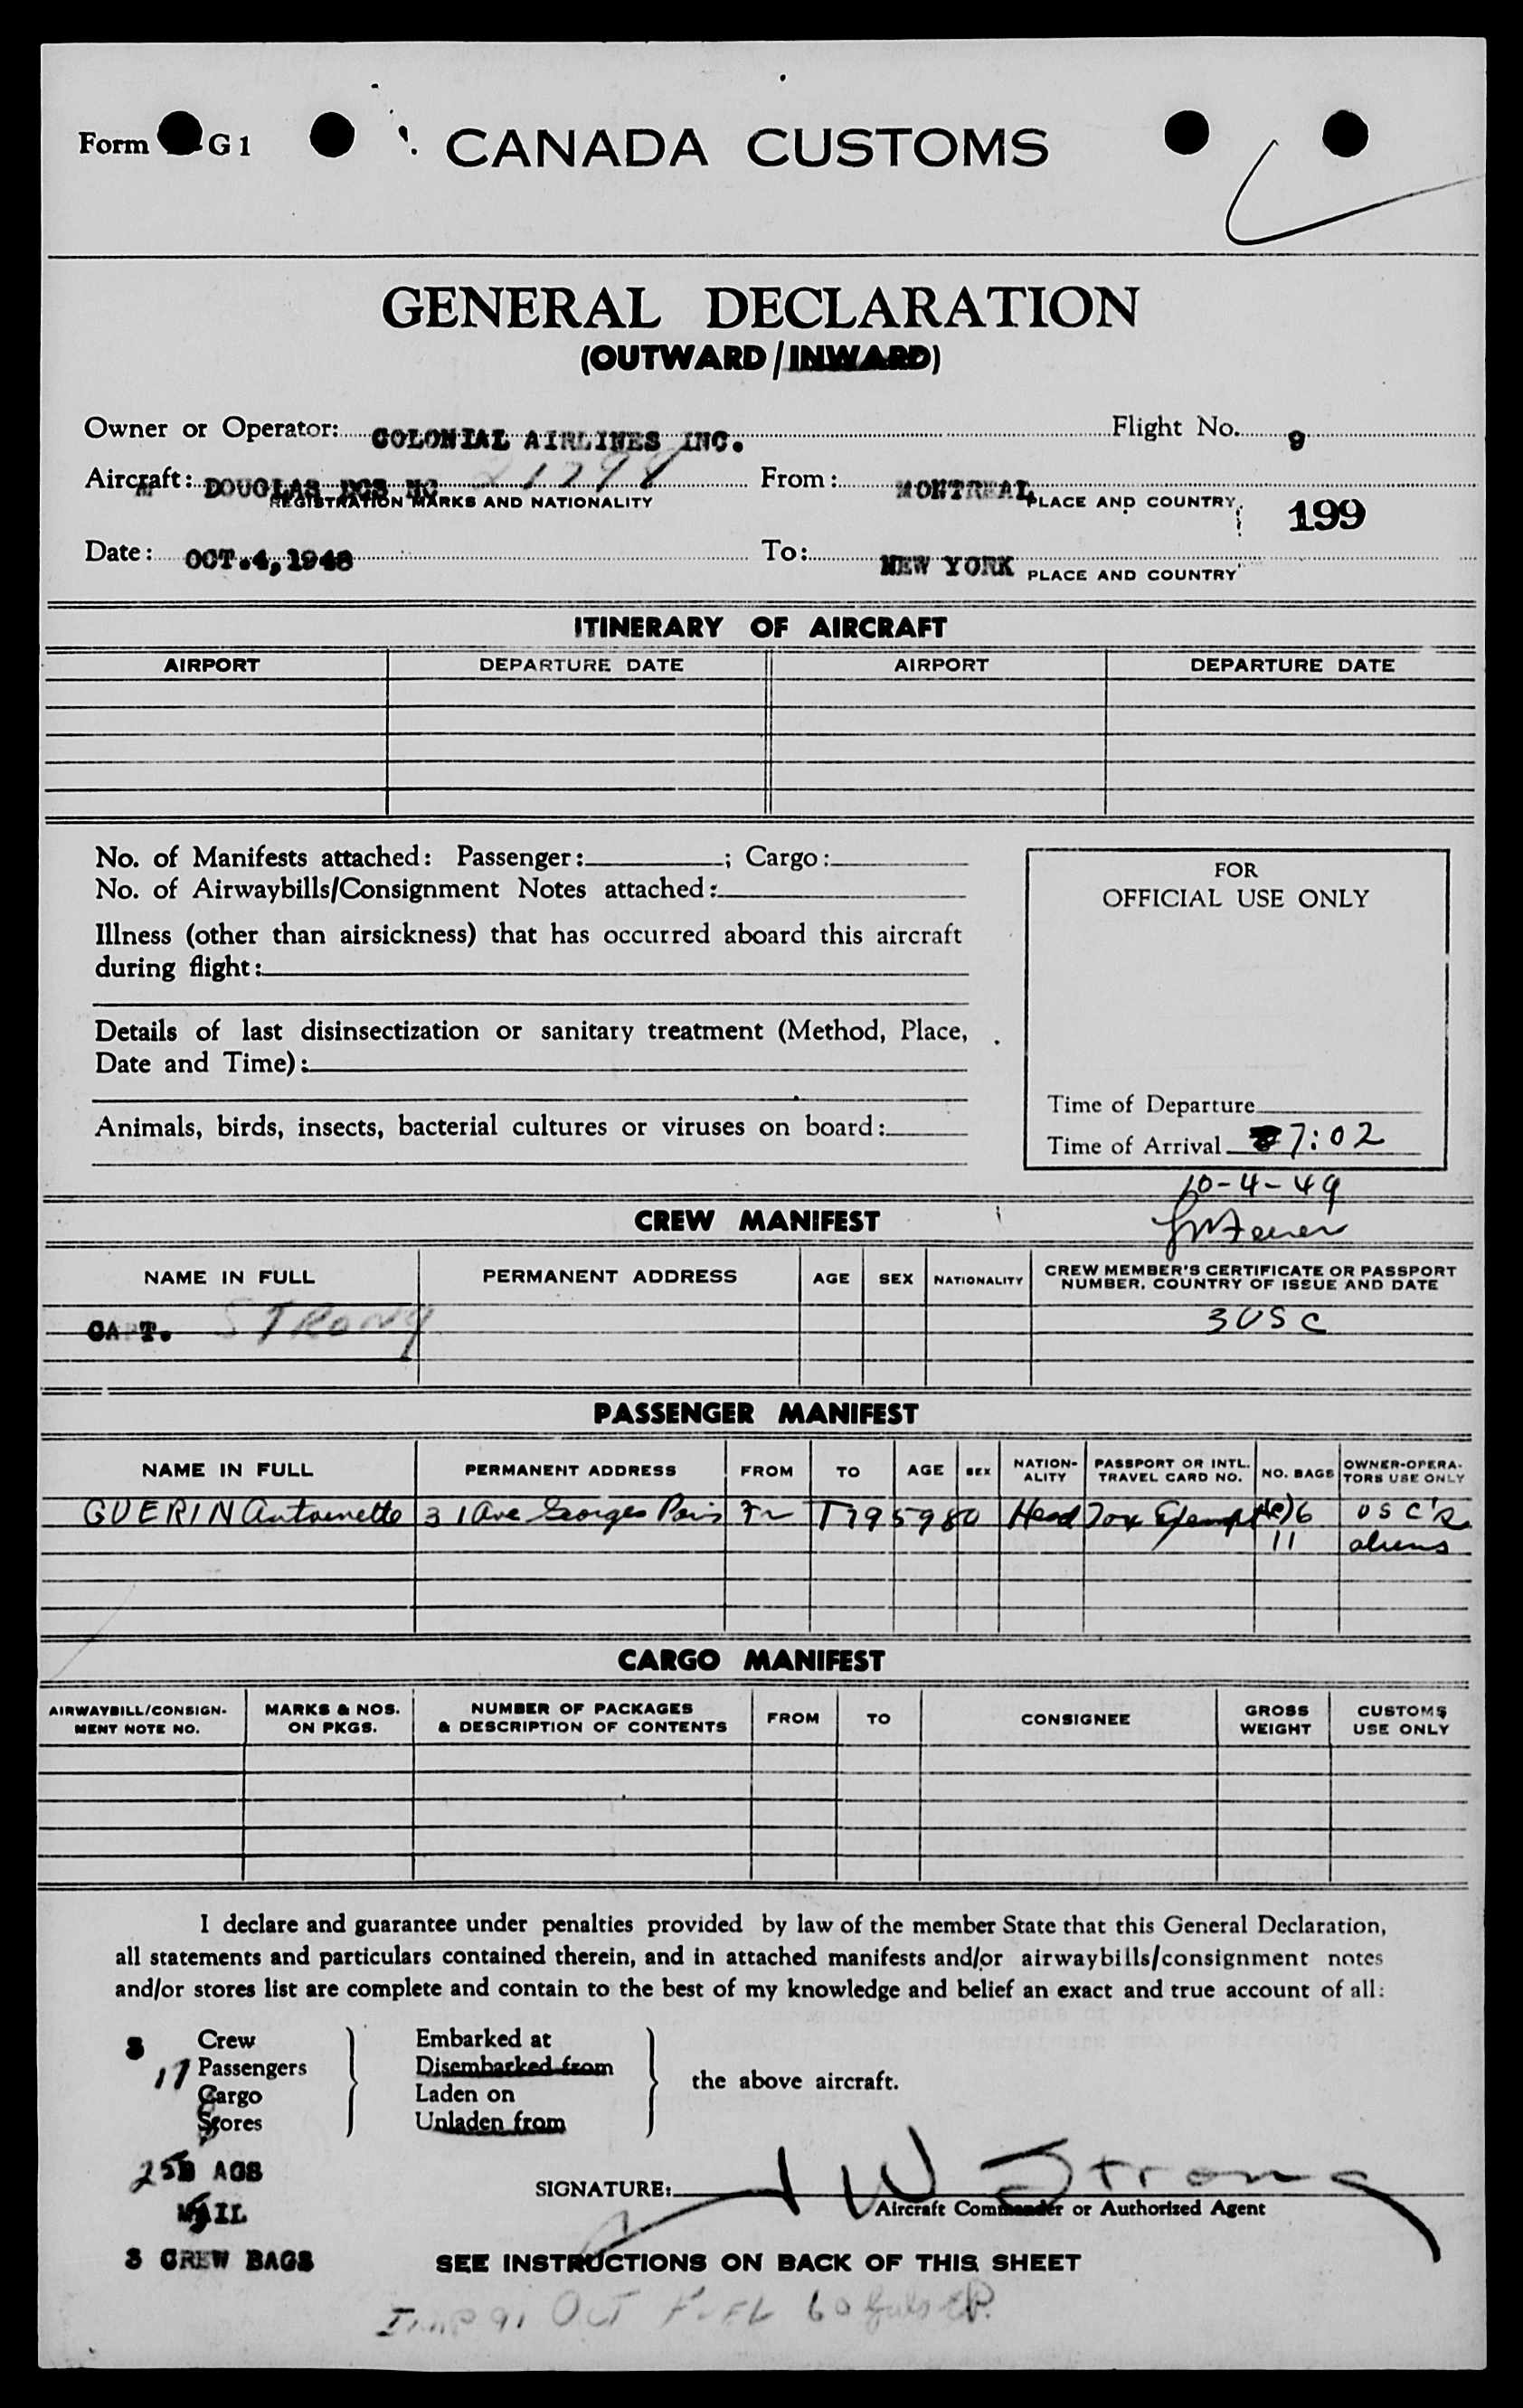 Form G 1
CANADA CUSTOMS
GENERAL DECLARATION
(OUTWARD/INWARD)
Owner or Operator: COLONIAL AIRLINES INC. Flight No. 9
Aircraft: DOUGLAS DC3 NC 21798 From: MONTREAL
REGISTRATION MARKS AND NATIONALITY PLACE AND COUNTRY
199
Date: OCT.4,1948 To: NEW YORK
PLACE AND COUNTRY
ITINERARY OF AIRCRAFT
AIRPORT DEPARTURE DATE AIRPORT DEPARTURE DATE
No. of Manifests attached: Passenger: ; Cargo:
No. of Airwaybills/Consignment Notes attached:
Illness (other than airsickness) that has occurred aboard this aircraft
during flight:
Details of last disinsectization or sanitary treatment (Method, Place,
Date and Time):
Animals, birds, insects, bacterial cultures or viruses on board:
FOR
OFFICIAL USE ONLY
Time of Departure
Time of Arrival 7:02
10-4-49
CREW MANIFEST
NAME IN FULL PERMANENT ADDRESS AGE SEX NATIONALITY CREW MEMBER'S CERTIFICATE OR PASSPORT
NUMBER, COUNTRY OF ISSUE AND DATE
CAPT. STRONG 3 USC
PASSENGER MANIFEST
NAME IN FULL PERMANENT ADDRESS FROM TO AGE SEX NATION-
ALITY PASSPORT OR INTL.
TRAVEL CARD NO. NO. BAGS OWNER-OPERA-
TORS USE ONLY
GUERIN Antoinette 31 Ave Georges Paris Fr T795980 Head Tax Exempt 6 USC's
11 aliens
CARGO MANIFEST
AIRWAYBILL/CONSIGN-
MENT NOTE NO. MARKS & NOS.
ON PKGS. NUMBER OF PACKAGES
& DESCRIPTION OF CONTENTS FROM TO CONSIGNEE GROSS
WEIGHT CUSTOMS
USE ONLY
I declare and guarantee under penalties provided by law of the member State that this General Declaration,
all statements and particulars contained therein, and in attached manifests and/or airwaybills/consignment notes
and/or stores list are complete and contain to the best of my knowledge and belief an exact and true account of all:
3 Crew Embarked at
17 Passengers Disembarked from
the above aircraft.
Cargo Laden on
Stores Unladen from
25 BAGS
MAIL
3 CREW BAGS
SIGNATURE: J W Strong
Aircraft Commander or Authorized Agent
SEE INSTRUCTIONS ON BACK OF THIS SHEET
91 OCT FUEL 60 Gals